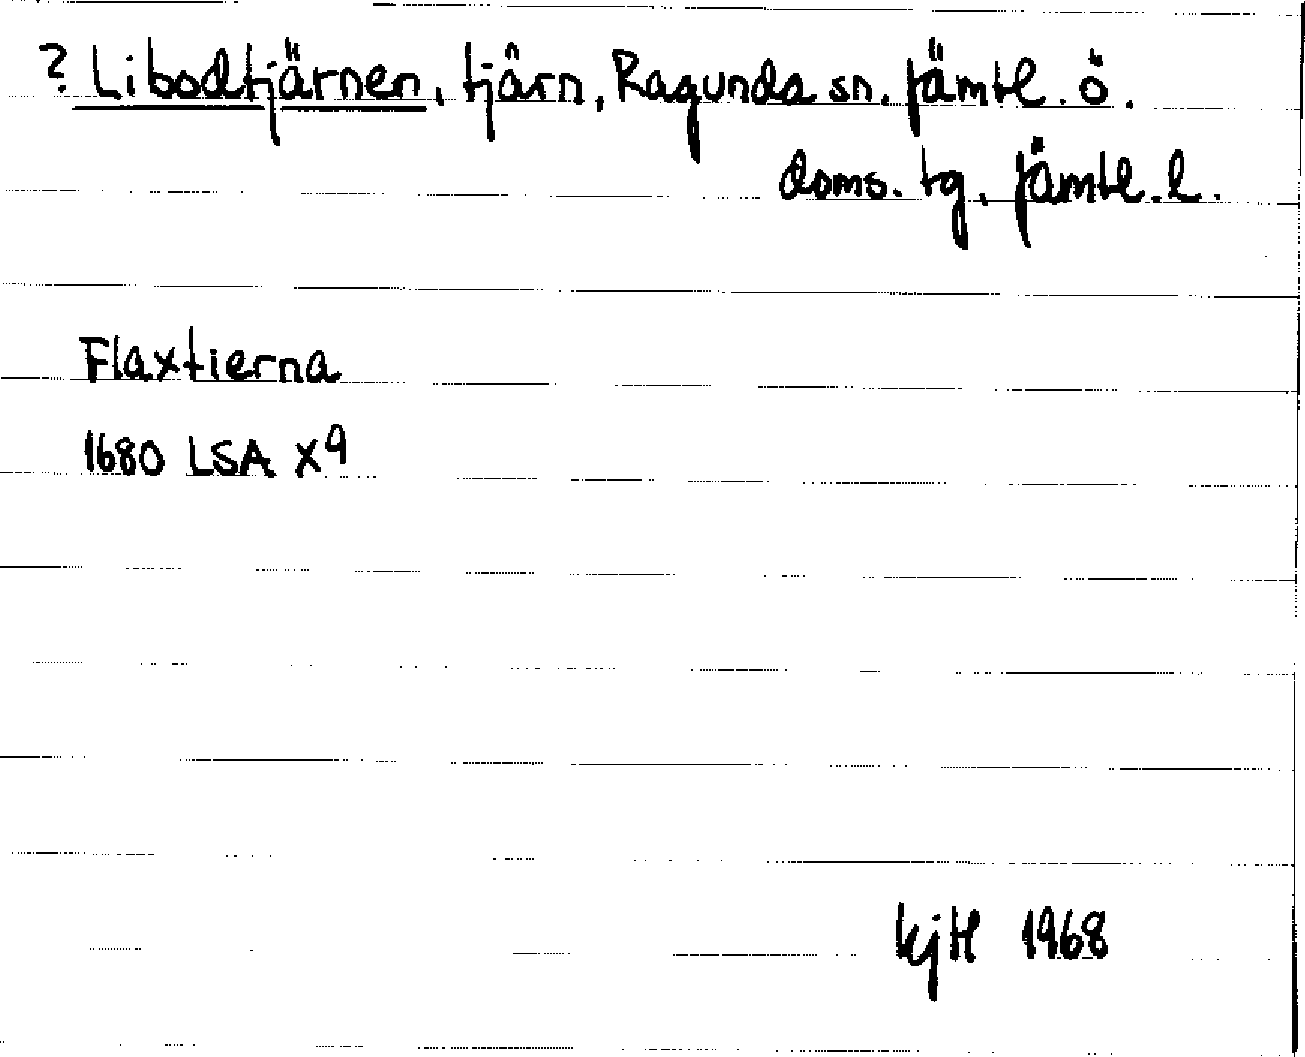 ? Libodtjärnen, tjärn, Ragunda sn. Jämtl. ö.
doms. tg. Jämtl. l.
Flaxtierna
1680 LSA X9
1968